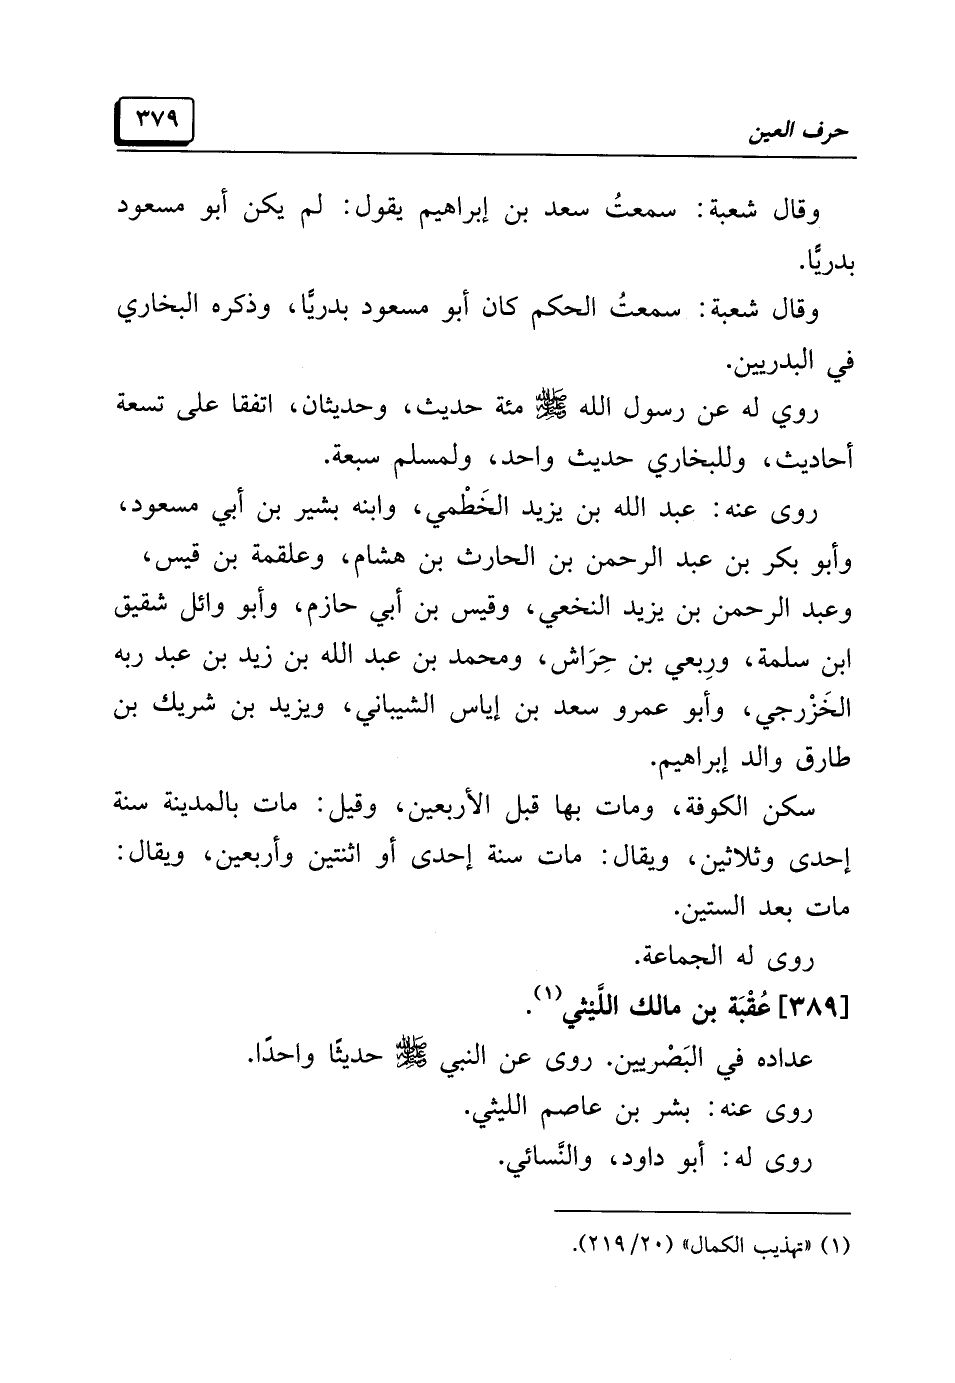 حرف العين
٣٧٩
وقال شعبة: سمعتُ سعد بن إبراهيم يقول: لم يكن أبو مسعود
بدريًّا.
وقال شعبة: سمعتُ الحكم كان أبو مسعود بدريًّا، وذكره البخاري
في البدريين.
روي له عن رسول الله ﷺ مئة حديث، وحديثان، اتفقا على تسعة
أحاديث، وللبخاري حديث واحد، ولمسلم سبعة.
روى عنه: عبد الله بن يزيد الخَطْمي، وابنه بشير بن أبي مسعود،
وأبو بكر بن عبد الرحمن بن الحارث بن هشام، وعلقمة بن قيس،
وعبد الرحمن بن يزيد النخعي، وقيس بن أبي حازم، وأبو وائل شقيق
ابن سلمة، ورِبعي بن حِرَاش، ومحمد بن عبد الله بن زيد بن عبد ربه
الخَزْرجي، وأبو عمرو سعد بن إياس الشيباني، ويزيد بن شريك بن
طارق والد إبراهيم.
سكن الكوفة، ومات بها قبل الأربعين، وقيل: مات بالمدينة سنة
إحدى وثلاثين، ويقال: مات سنة إحدى أو اثنتين وأربعين، ويقال:
مات بعد الستين.
روى له الجماعة.
[٣٨٩] عُقْبَة بن مالك اللَّيْثي(١).
عداده في البَصْريين. روى عن النبي ﷺ حديثًا واحدًا.
روى عنه: بشر بن عاصم الليثي.
روى له: أبو داود، والنَّسائي.
(١) «تهذيب الكمال» (٢٠/ ٢١٩).